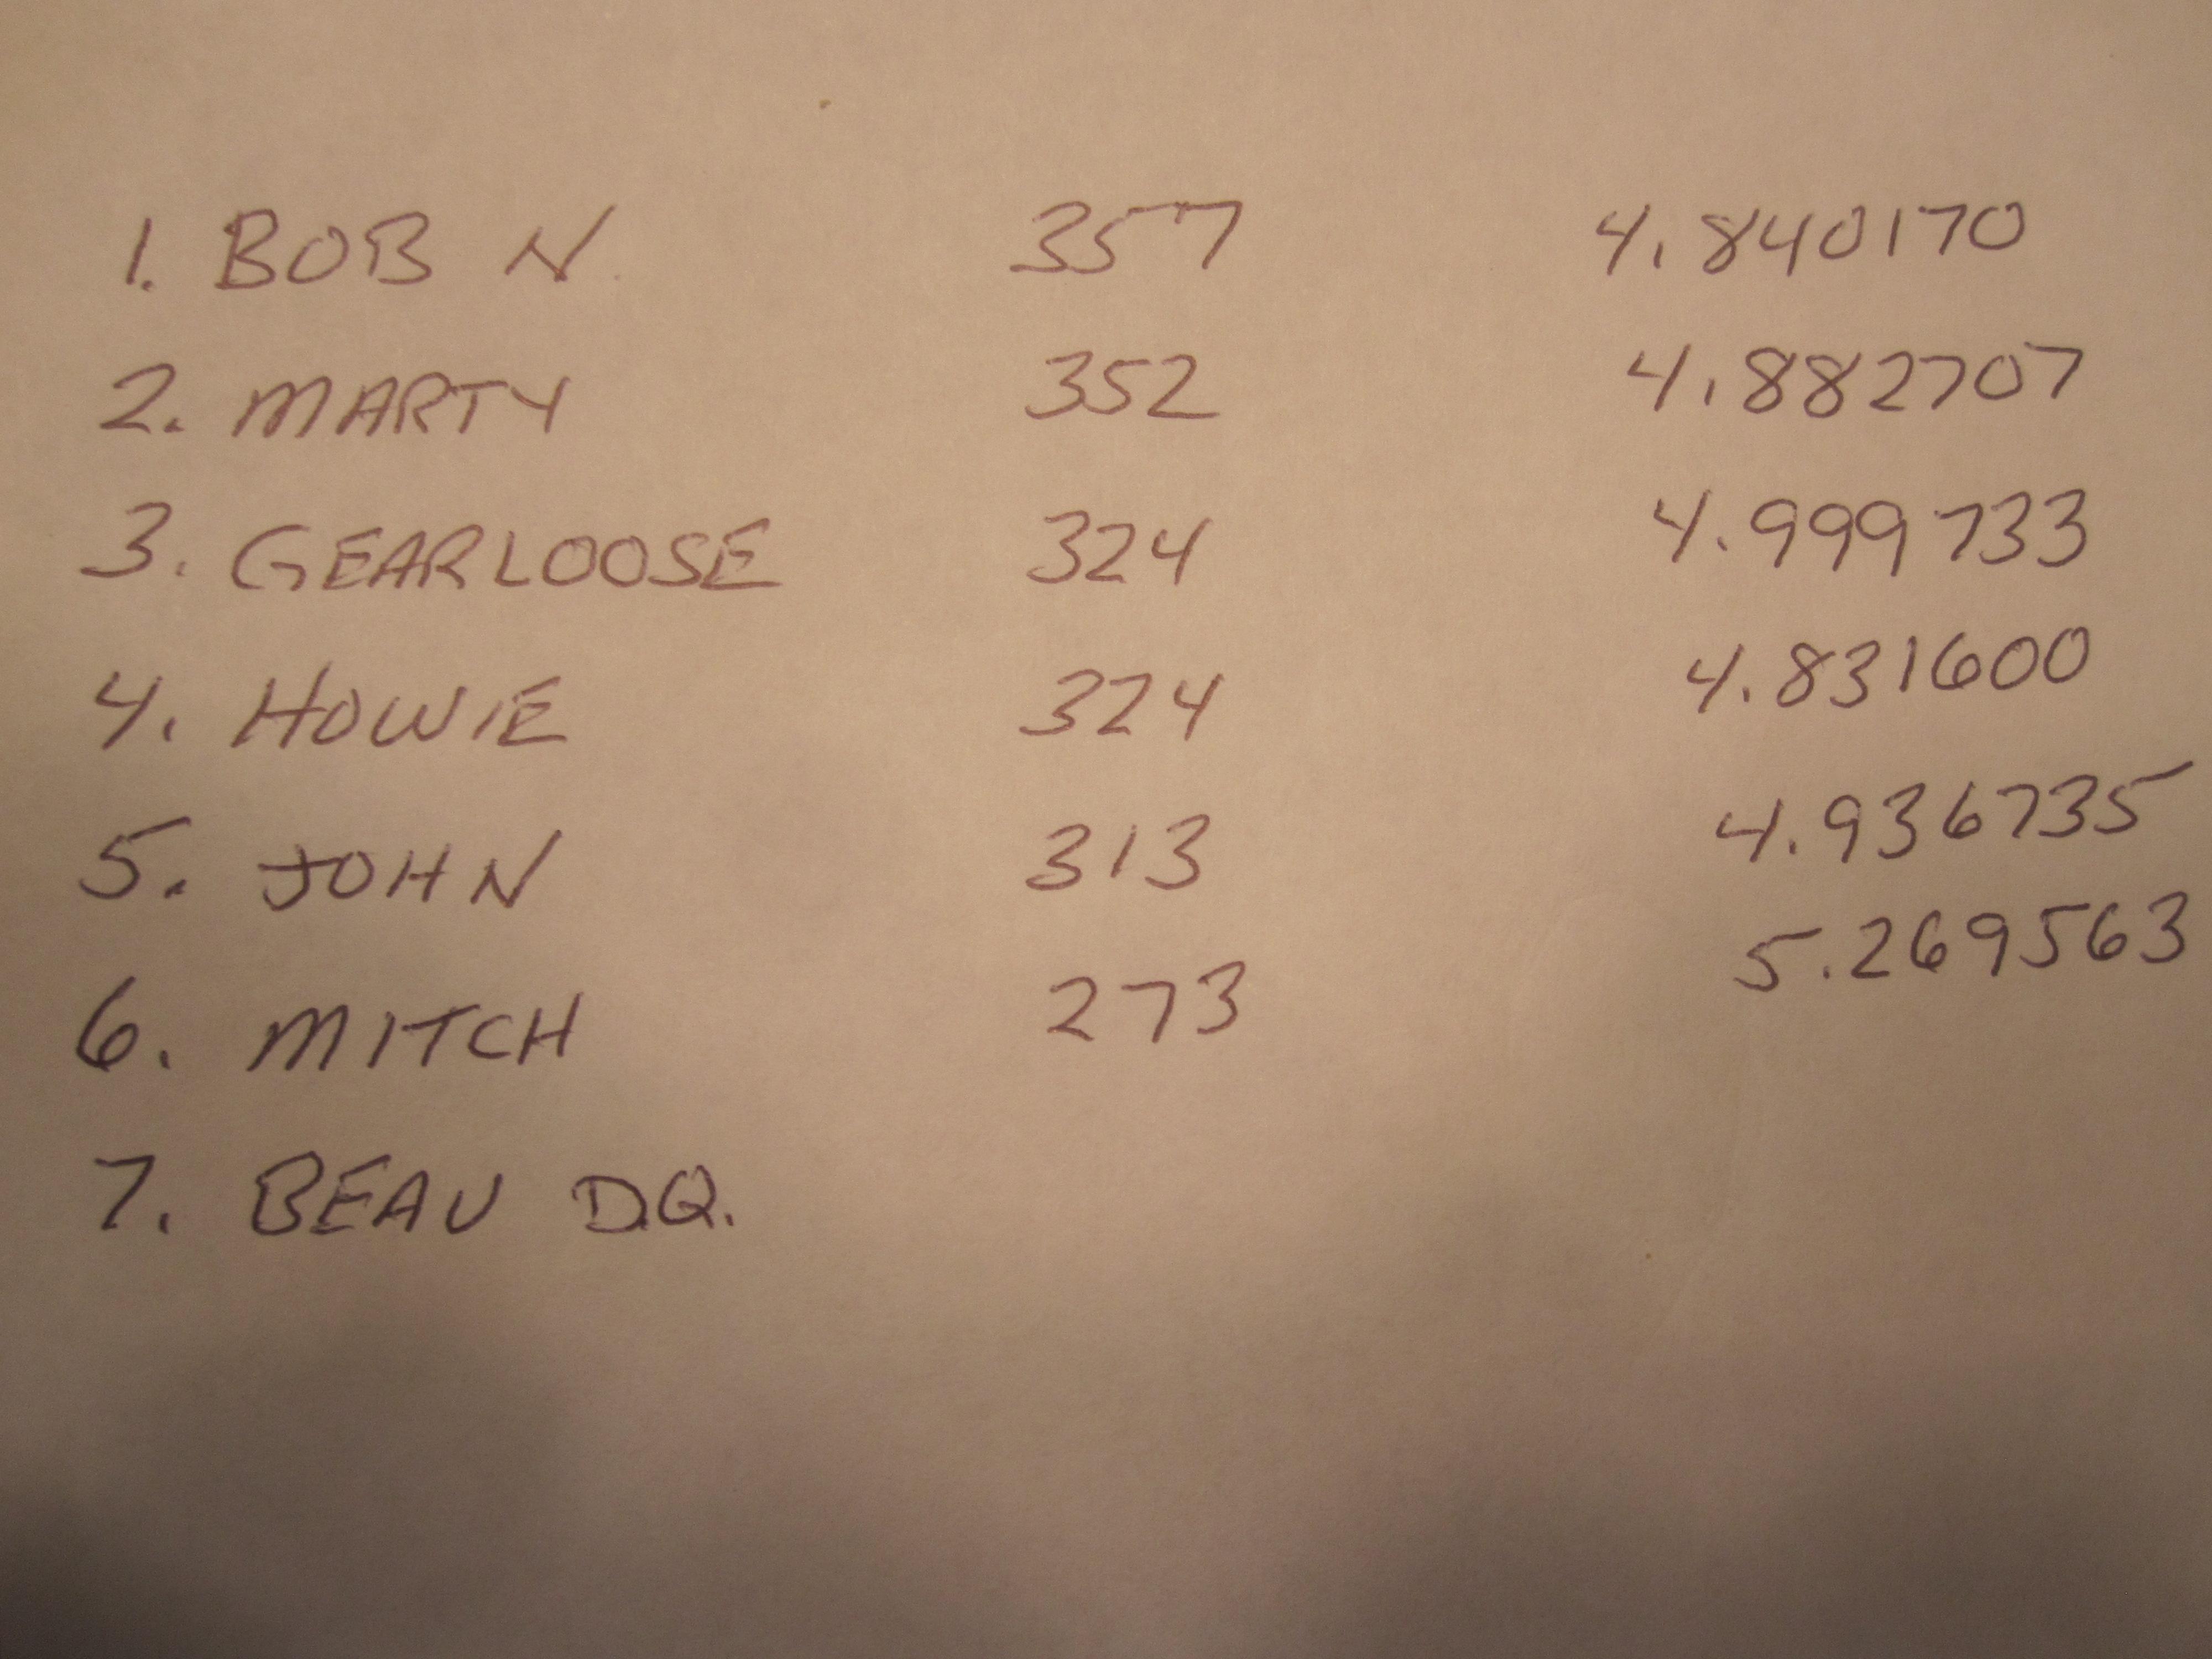 1. BOB N. 357 4.840170
2. MARTY 352 4.882707
3. GEARLOOSE 324 4.999733
4. HOWIE 324 4.831600
5. JOHN 313 4.936735
6. MITCH 273 5.269563
7. BEAU D.Q.